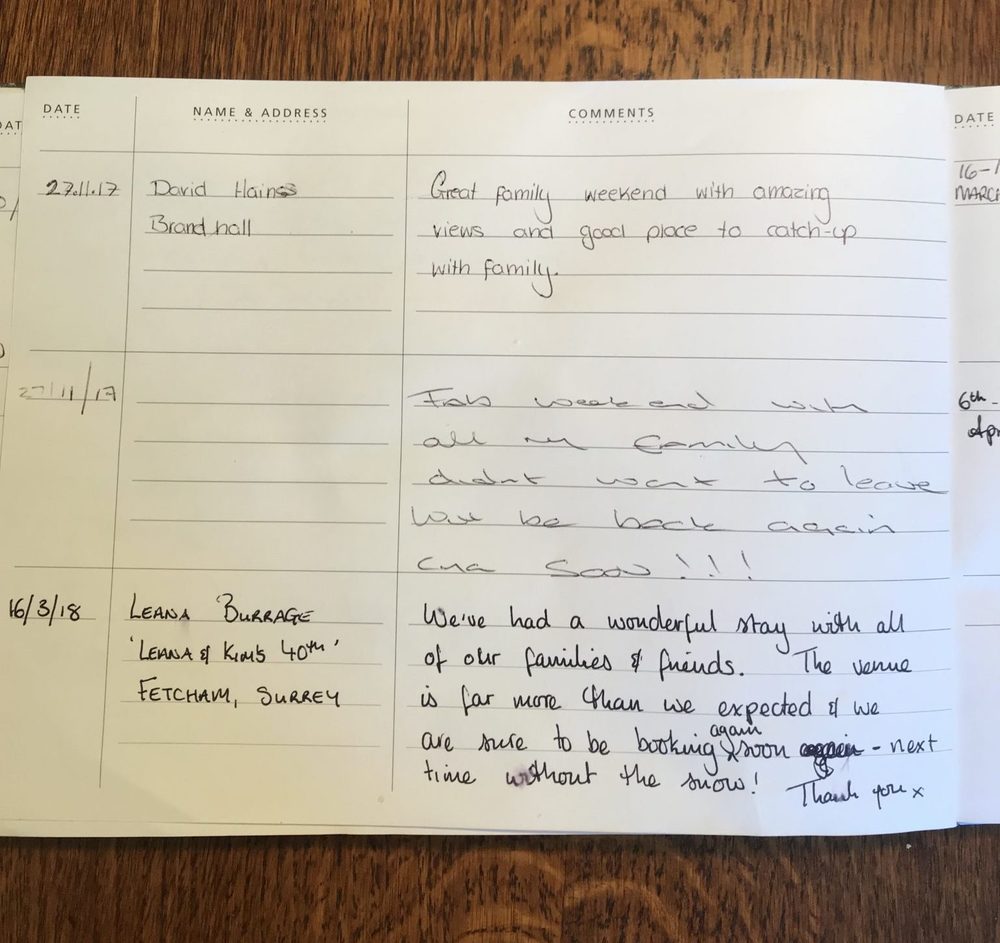 DATE NAME & ADDRESS COMMENTS
27.11.17 David Hains Great family weekend with amazing
Brandhall views and good place to catch-up
with family.
27/11/17 Fab weekend with
all my family
didnt want to leave
will be back again
soon!!!
16/3/18 LEANA BURRAGE We've had a wonderful stay with all
'LEANA & KIM'S 40TH' of our families & friends. The venue
FETCHAM, SURREY is far more than we expected & we
are sure to be booking again soon - next
time without the snow! Thank you x
DATE
16-1
MARC
6th -
Apr